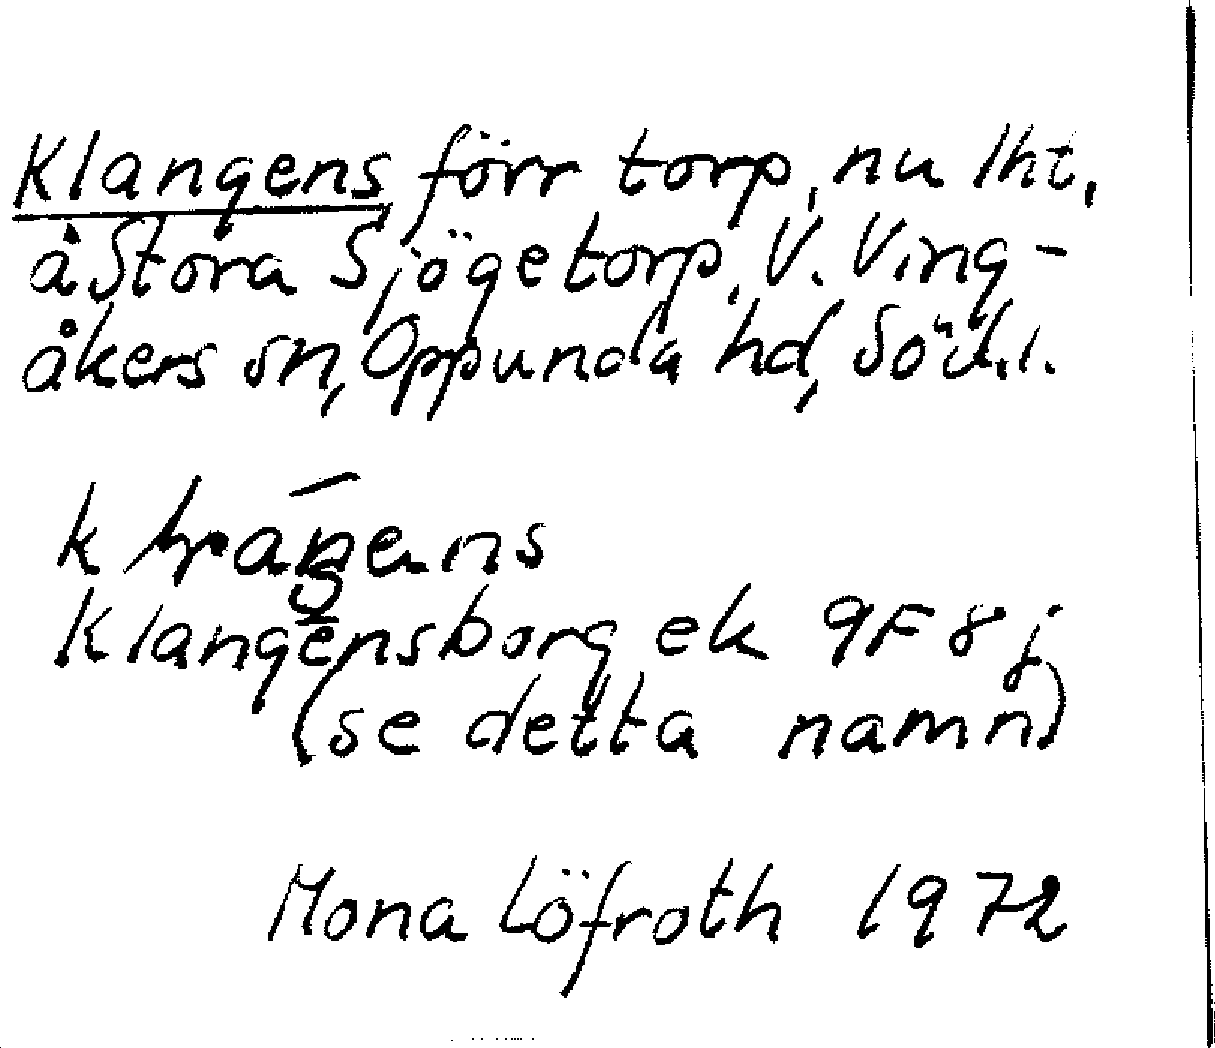 Klangens, förr torp, nu lht,
å Stora Sjögetorp, V. Ving-
åkers sn, Oppunda hd, Södl.
Klangensborg ek 9F 8 j
(se detta namn)
Mona Löfroth 1972